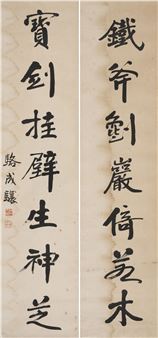 鐵斧劖巖倚若木
寶劍挂壁生神芝
駱成驤